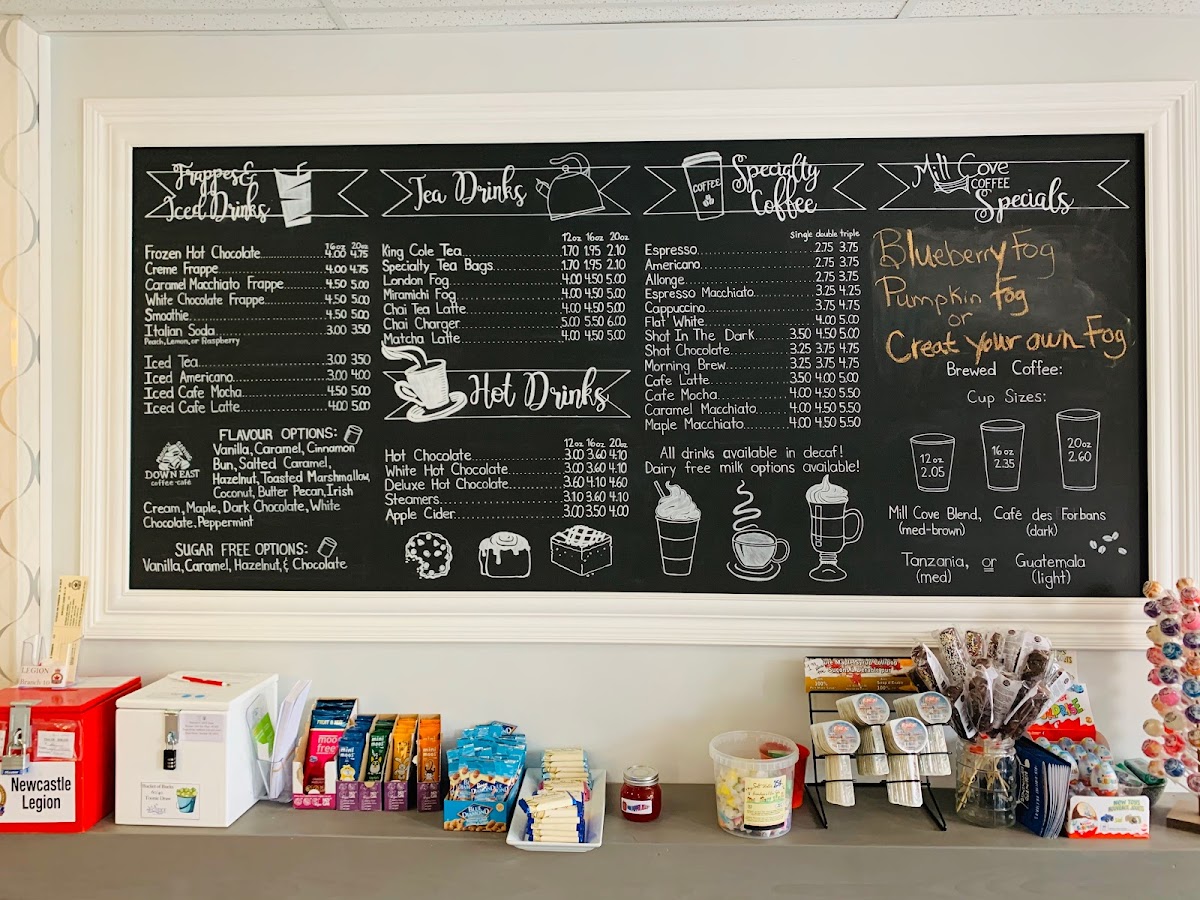 Frappes &
Iced Drinks
16oz 20oz
Frozen Hot Chocolate 4.00 4.75
Creme Frappe 4.00 4.75
Caramel Macchiato Frappe 4.50 5.00
White Chocolate Frappe 4.50 5.00
Smoothie 4.50 5.00
Italian Soda 3.00 3.50
Peach, Lemon, or Raspberry
Iced Tea 3.00 3.50
Iced Americano 3.00 4.00
Iced Cafe Mocha 4.50 5.00
Iced Cafe Latte 4.00 5.00
FLAVOUR OPTIONS:
Vanilla, Caramel, Cinnamon
Bun, Salted Caramel,
Hazelnut, Toasted Marshmallow,
Coconut, Butter Pecan, Irish
Cream, Maple, Dark Chocolate, White
Chocolate, Peppermint
DOWN EAST
coffee·café
SUGAR FREE OPTIONS:
Vanilla, Caramel, Hazelnut, & Chocolate
Tea Drinks
12oz 16oz 20oz
King Cole Tea 1.70 1.95 2.10
Specialty Tea Bags 1.70 1.95 2.10
London Fog 4.00 4.50 5.00
Miramichi Fog 4.00 4.50 5.00
Chai Tea Latte 4.00 4.50 5.00
Chai Charger 5.00 5.50 6.00
Matcha Latte 4.00 4.50 5.00
Hot Drinks
12oz 16oz 20oz
Hot Chocolate 3.00 3.60 4.10
White Hot Chocolate 3.00 3.60 4.10
Deluxe Hot Chocolate 3.60 4.10 4.60
Steamers 3.10 3.60 4.10
Apple Cider 3.00 3.50 4.00
COFFEE
Specialty
Coffee
single double triple
Espresso 2.75 3.75
Americano 2.75 3.75
Allonge 2.75 3.75
Espresso Macchiato 3.25 4.25
Cappuccino 3.75 4.75
Flat White 4.00 5.00
Shot In The Dark 3.50 4.50 5.00
Shot Chocolate 3.25 3.75 4.75
Morning Brew 3.25 3.75 4.75
Cafe Latte 3.50 4.00 5.00
Cafe Mocha 4.00 4.50 5.50
Caramel Macchiato 4.00 4.50 5.50
Maple Macchiato 4.00 4.50 5.50
All drinks available in decaf!
Dairy free milk options available!
Mill Cove
COFFEE
Specials
Blueberry Fog
Pumpkin Fog
or
Creat your own Fog
Brewed Coffee:
Cup Sizes:
12oz
2.05
16oz
2.35
20oz
2.60
Mill Cove Blend, Café des Forbans
(med-brown) (dark)
Tanzania, or Guatemala
(med) (light)
LEGION
Newcastle
Legion
moo
free
mini
moos
mini
BLUE
DIAMOND
25¢
Kinder